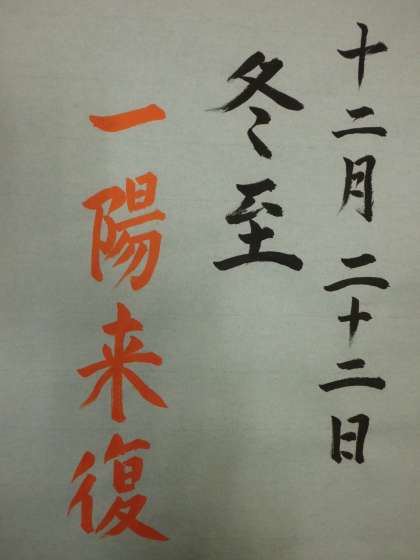 十二月二十二日
冬至
一陽来復